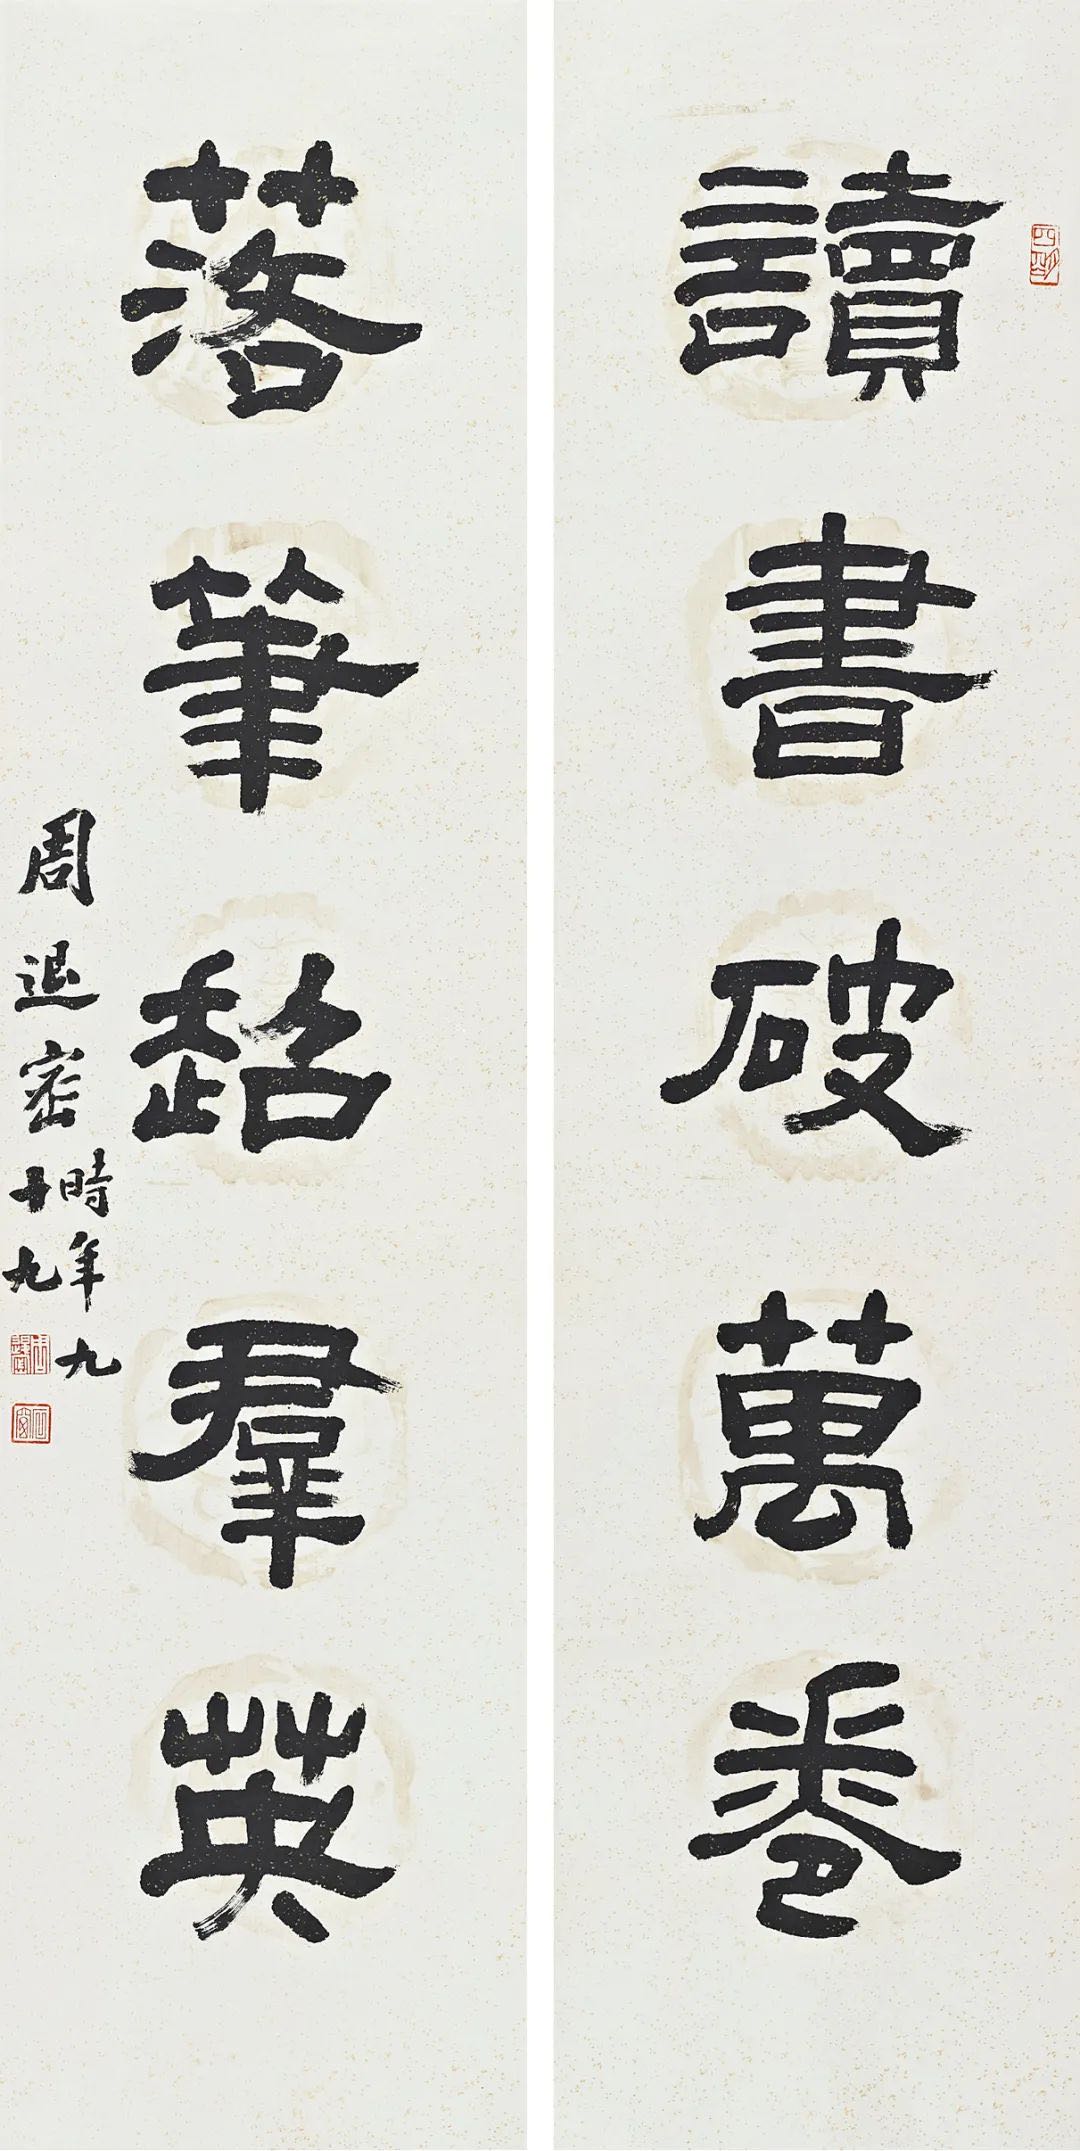 讀書破萬卷
落筆超羣英
周退密時年九
十九